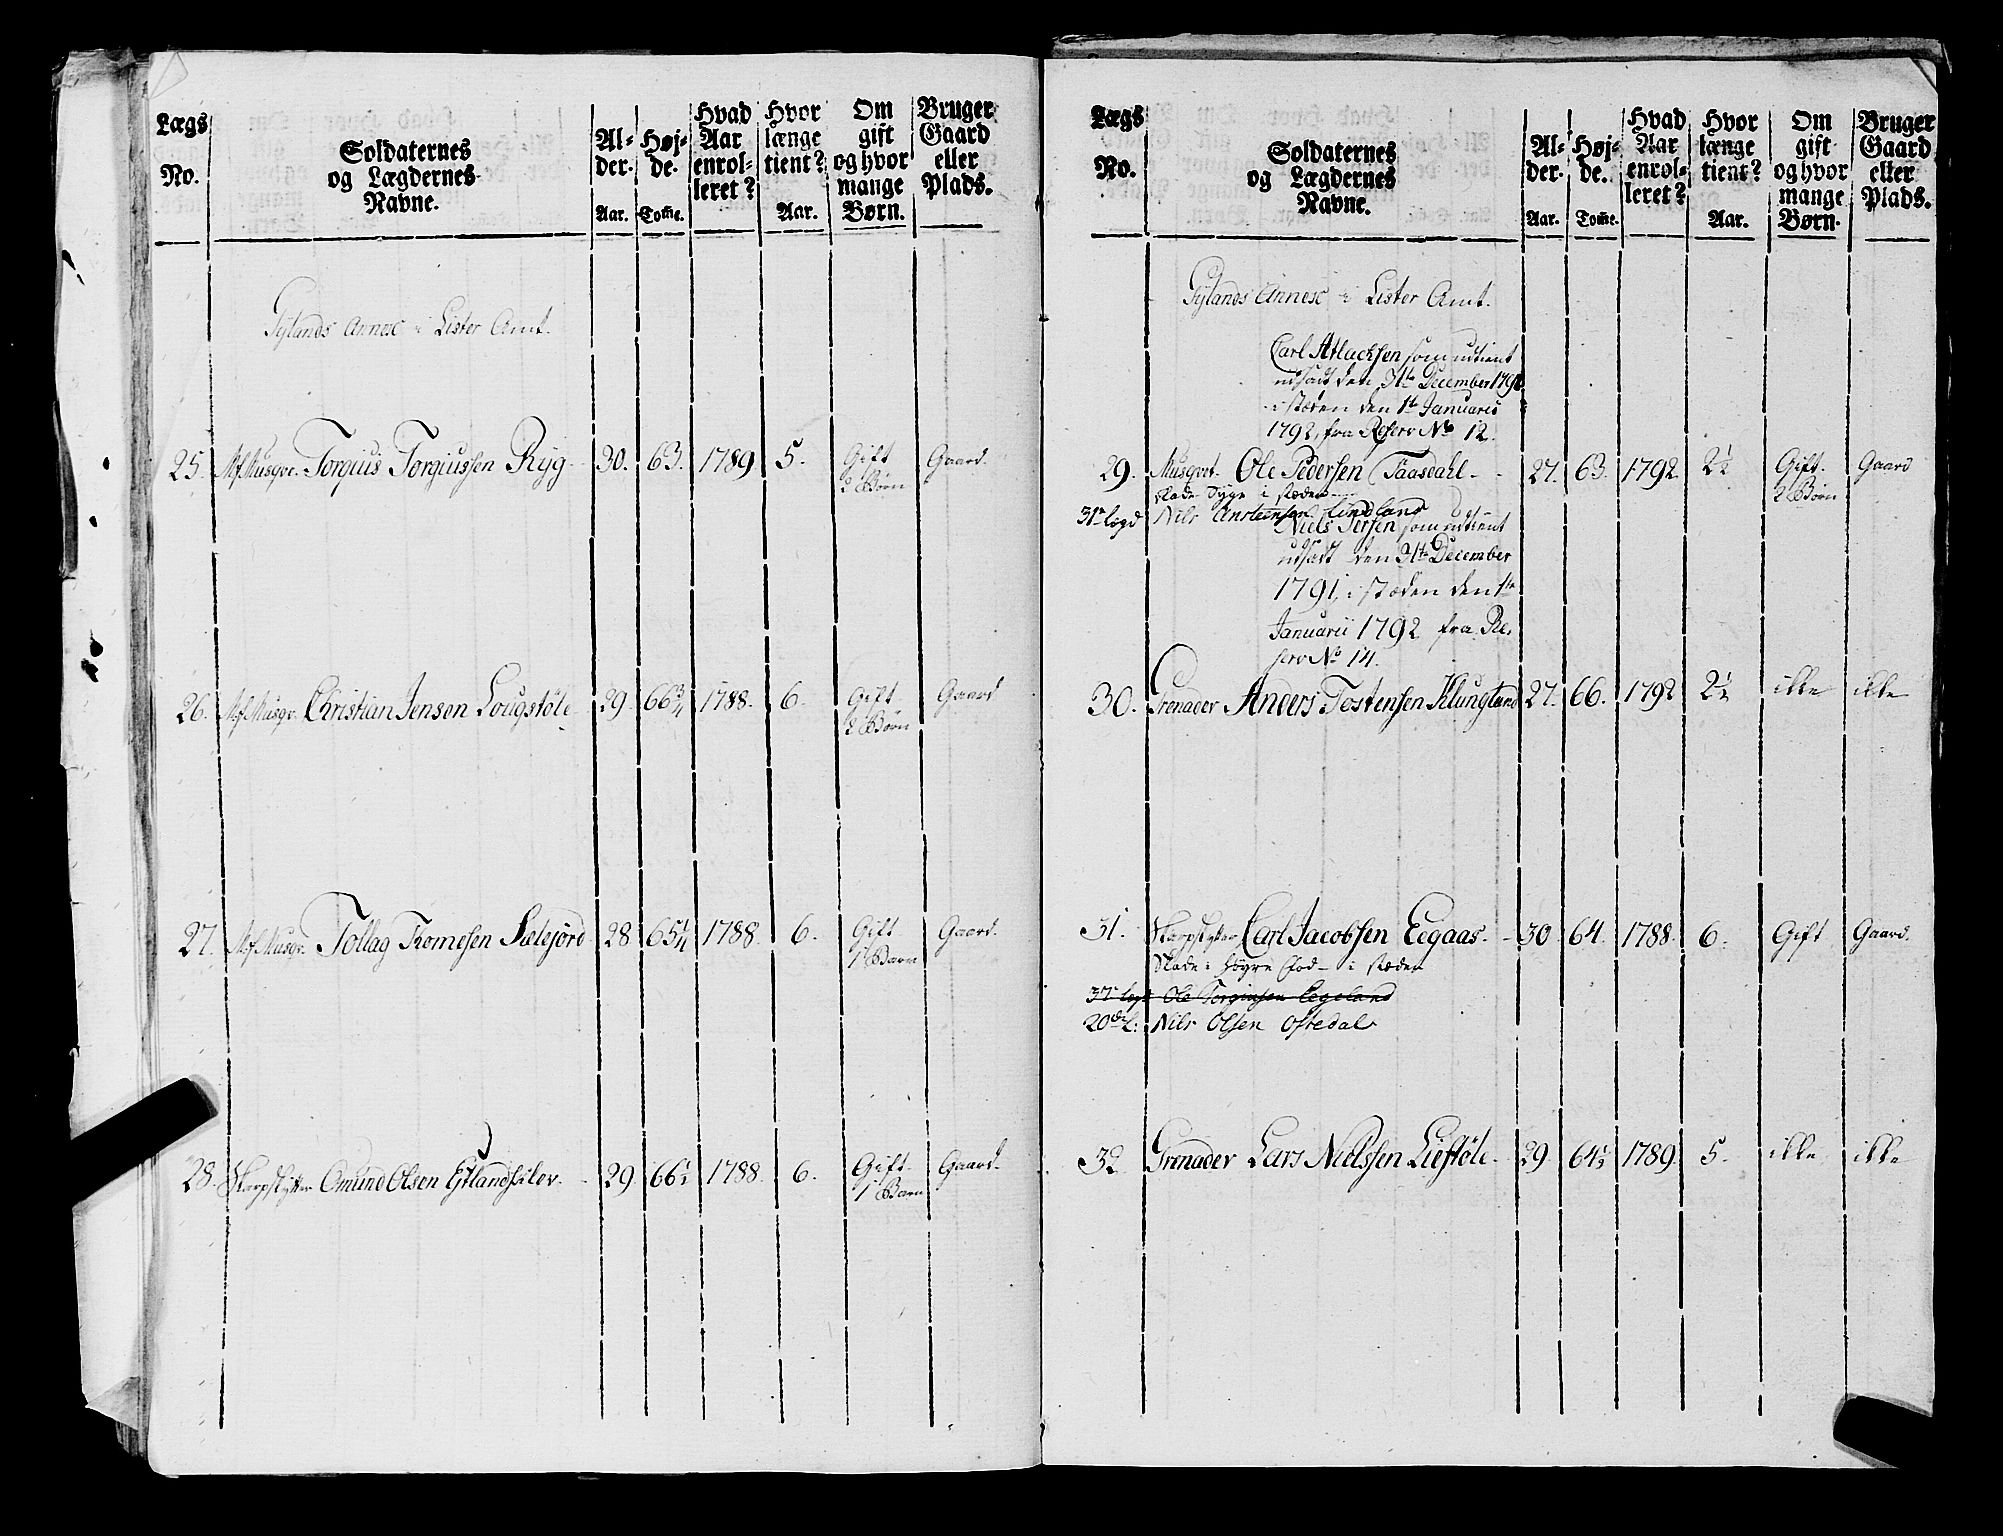 Lægs No. | Soldaternes og Lægdernes Navne. | Al-der. Aar. | Høj-de. Tome. | Hvad Aar enrol-leret? | Hvor længe tient? Aar. | Om gift og hvor mange Børn. | Bruger Gaard eller Plads.
Gylands Annex i Lister Amt.
25. Nf. Musqr. Torgius Torgiussen Ryg 30. 63. 1789 5. Gift Gaard.
2 Børn
26. Nf. Musqr. Christian Jensen Lougstøle 29. 66 3/4 1788. 6. Gift Gaard
2 Børn
27. Nf. Musqr. Tollag Tomesen Sælejord 28. 65 1/4 1788. 6. Gift Gaard.
1 Barn
28. Skarpskytter Omund Olsen 29. 66 1/2 1788. 6. Gift Gaard
1 Barn
Lægs No. | Soldaternes og Lægdernes Navne. | Al-der. Aar. | Høj-de. Tome. | Hvad Aar enrol-leret? | Hvor længe tient? Aar. | Om gift og hvor mange Børn. | Bruger Gaard eller Plads.
Gylands Annex i Lister Amt.
Carl Atlachsen som udtient
udsadt den 31te December 1791
i stæden den 1te Januarii
1792, fra Reserv No 12.
29. Musqvet. Ole Pedersen Faasdahl 27. 63. 1792 2 1/2 Gift. Gaard
skade Syge i stæden 2 Børn
31te lægd Nils Ansteensen Lindland
Niels Persen som udtient
udsadt den 31te December
1791, i stæden den 1te
Januarii 1792 fra Re-
serv No 14.
30. Grenader Anders Testensen Klungland 27. 66. 1792 2 1/2 ikke ikke
31. Skarpskytter Carl Jacobsen Eegaas. 30 64. 1788. 6. Gift Gaard.
Skade i høyre Fod i stæden
37te lægd Ole Torginsen Eegeland
20de L: Nils Olsen Ofstedal
32 Grenader Lars Nielssen Liestøle 29. 64 1/2 1789. 5. ikke ikke